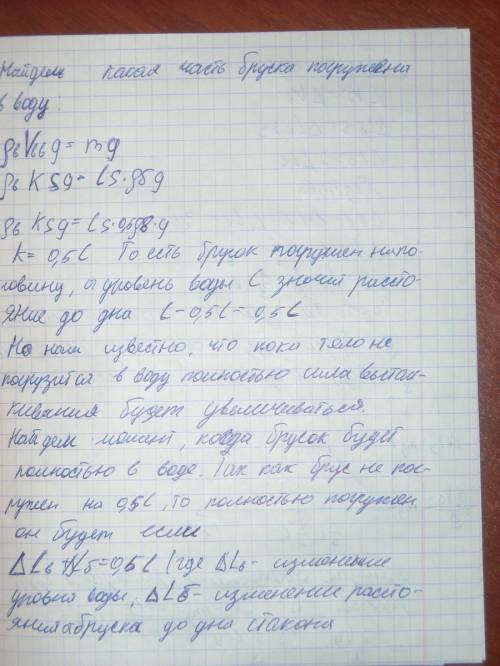 Найдем какая часть бруска погружена
в воду:
ρвVвg = mg
ρв KSg = LS·ρбg
ρв KSg = LS·0,5ρв·g
K = 0,5L То есть брусок погружен напо-
ловину, а уровень воды L значит рассто-
яние до дна L-0,5L = 0,5L
Но нам известно, что пока тело не
погрузится в воду полностью сила вытал-
кивания будет увеличиваться.
Найдем момент, когда брусок будет
полностью в воде. Так как брус не пог-
ружен на 0,5L, то полностью погружен
он будет если
ΔLв+ΔLб=0,5L (где ΔLв- изменение
уровня воды, ΔLб- изменение рассто-
яния бруска до дна стакана